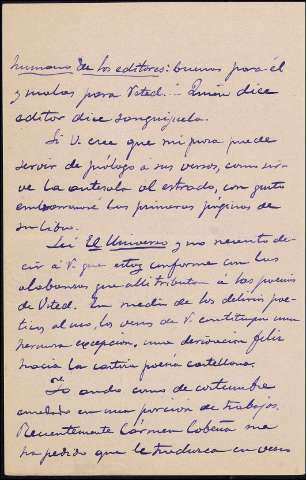 humano de los editores: buenos para él
y malos para Usted. — Quien dice
editor dice sanguijuela.
Si V. cree que mi prosa puede
servir de prólogo á sus versos, como sir-
ve la antesala al estrado, con gusto
emborronaré las primeras páginas de
su libro.
Leí El Universo y no necesito de-
cir á V. que estoy conforme con las
alabanzas que allí tributan á las poesías
de Usted. En medio de los delirios poé-
ticos al uso, los versos de V. constituyen una
hermosa excepción, una derivación feliz
hacia la castiza poesía castellana.
Yo ando como de costumbre
enredado en una porción de trabajos.
Recientemente Cármen Cobeña me
ha pedido que le traduzca en verso